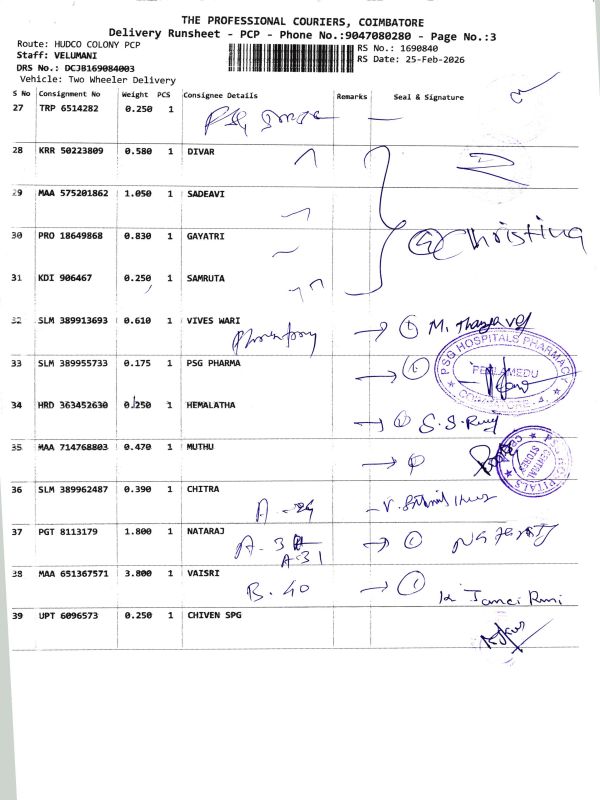 THE PROFESSIONAL COURIERS, COIMBATORE
Delivery Runsheet - PCP - Phone No.:9047080280 - Page No.:3
Route: HUDCO COLONY PCP
Staff: VELUMANI
DRS No.: DCJB169084003
Vehicle: Two Wheeler Delivery
RS No.: 1690840
RS Date: 25-Feb-2026
S No Consignment No Weight PCS Consignee Details Remarks Seal & Signature
27 TRP 6514282 0.250 1
28 KRR 50223809 0.580 1 DIVAR
29 MAA 575201862 1.050 1 SADEAVI
30 PRO 18649868 0.830 1 GAYATRI
Christina
31 KDI 906467 0.250 1 SAMRUTA
32 SLM 389913693 0.610 1 VIVES WARI
33 SLM 389955733 0.175 1 PSG PHARMA
PSG HOSPITALS PHARMACY
PEELAMEDU
COIMBATORE - 4.
34 HRD 363452630 0.250 1 HEMALATHA
35 MAA 714768803 0.470 1 MUTHU
CENTRAL STORES
36 SLM 389962487 0.390 1 CHITRA
37 PGT 8113179 1.800 1 NATARAJ
A-31
38 MAA 651367571 3.800 1 VAISRI
B-40
39 UPT 6096573 0.250 1 CHIVEN SPG